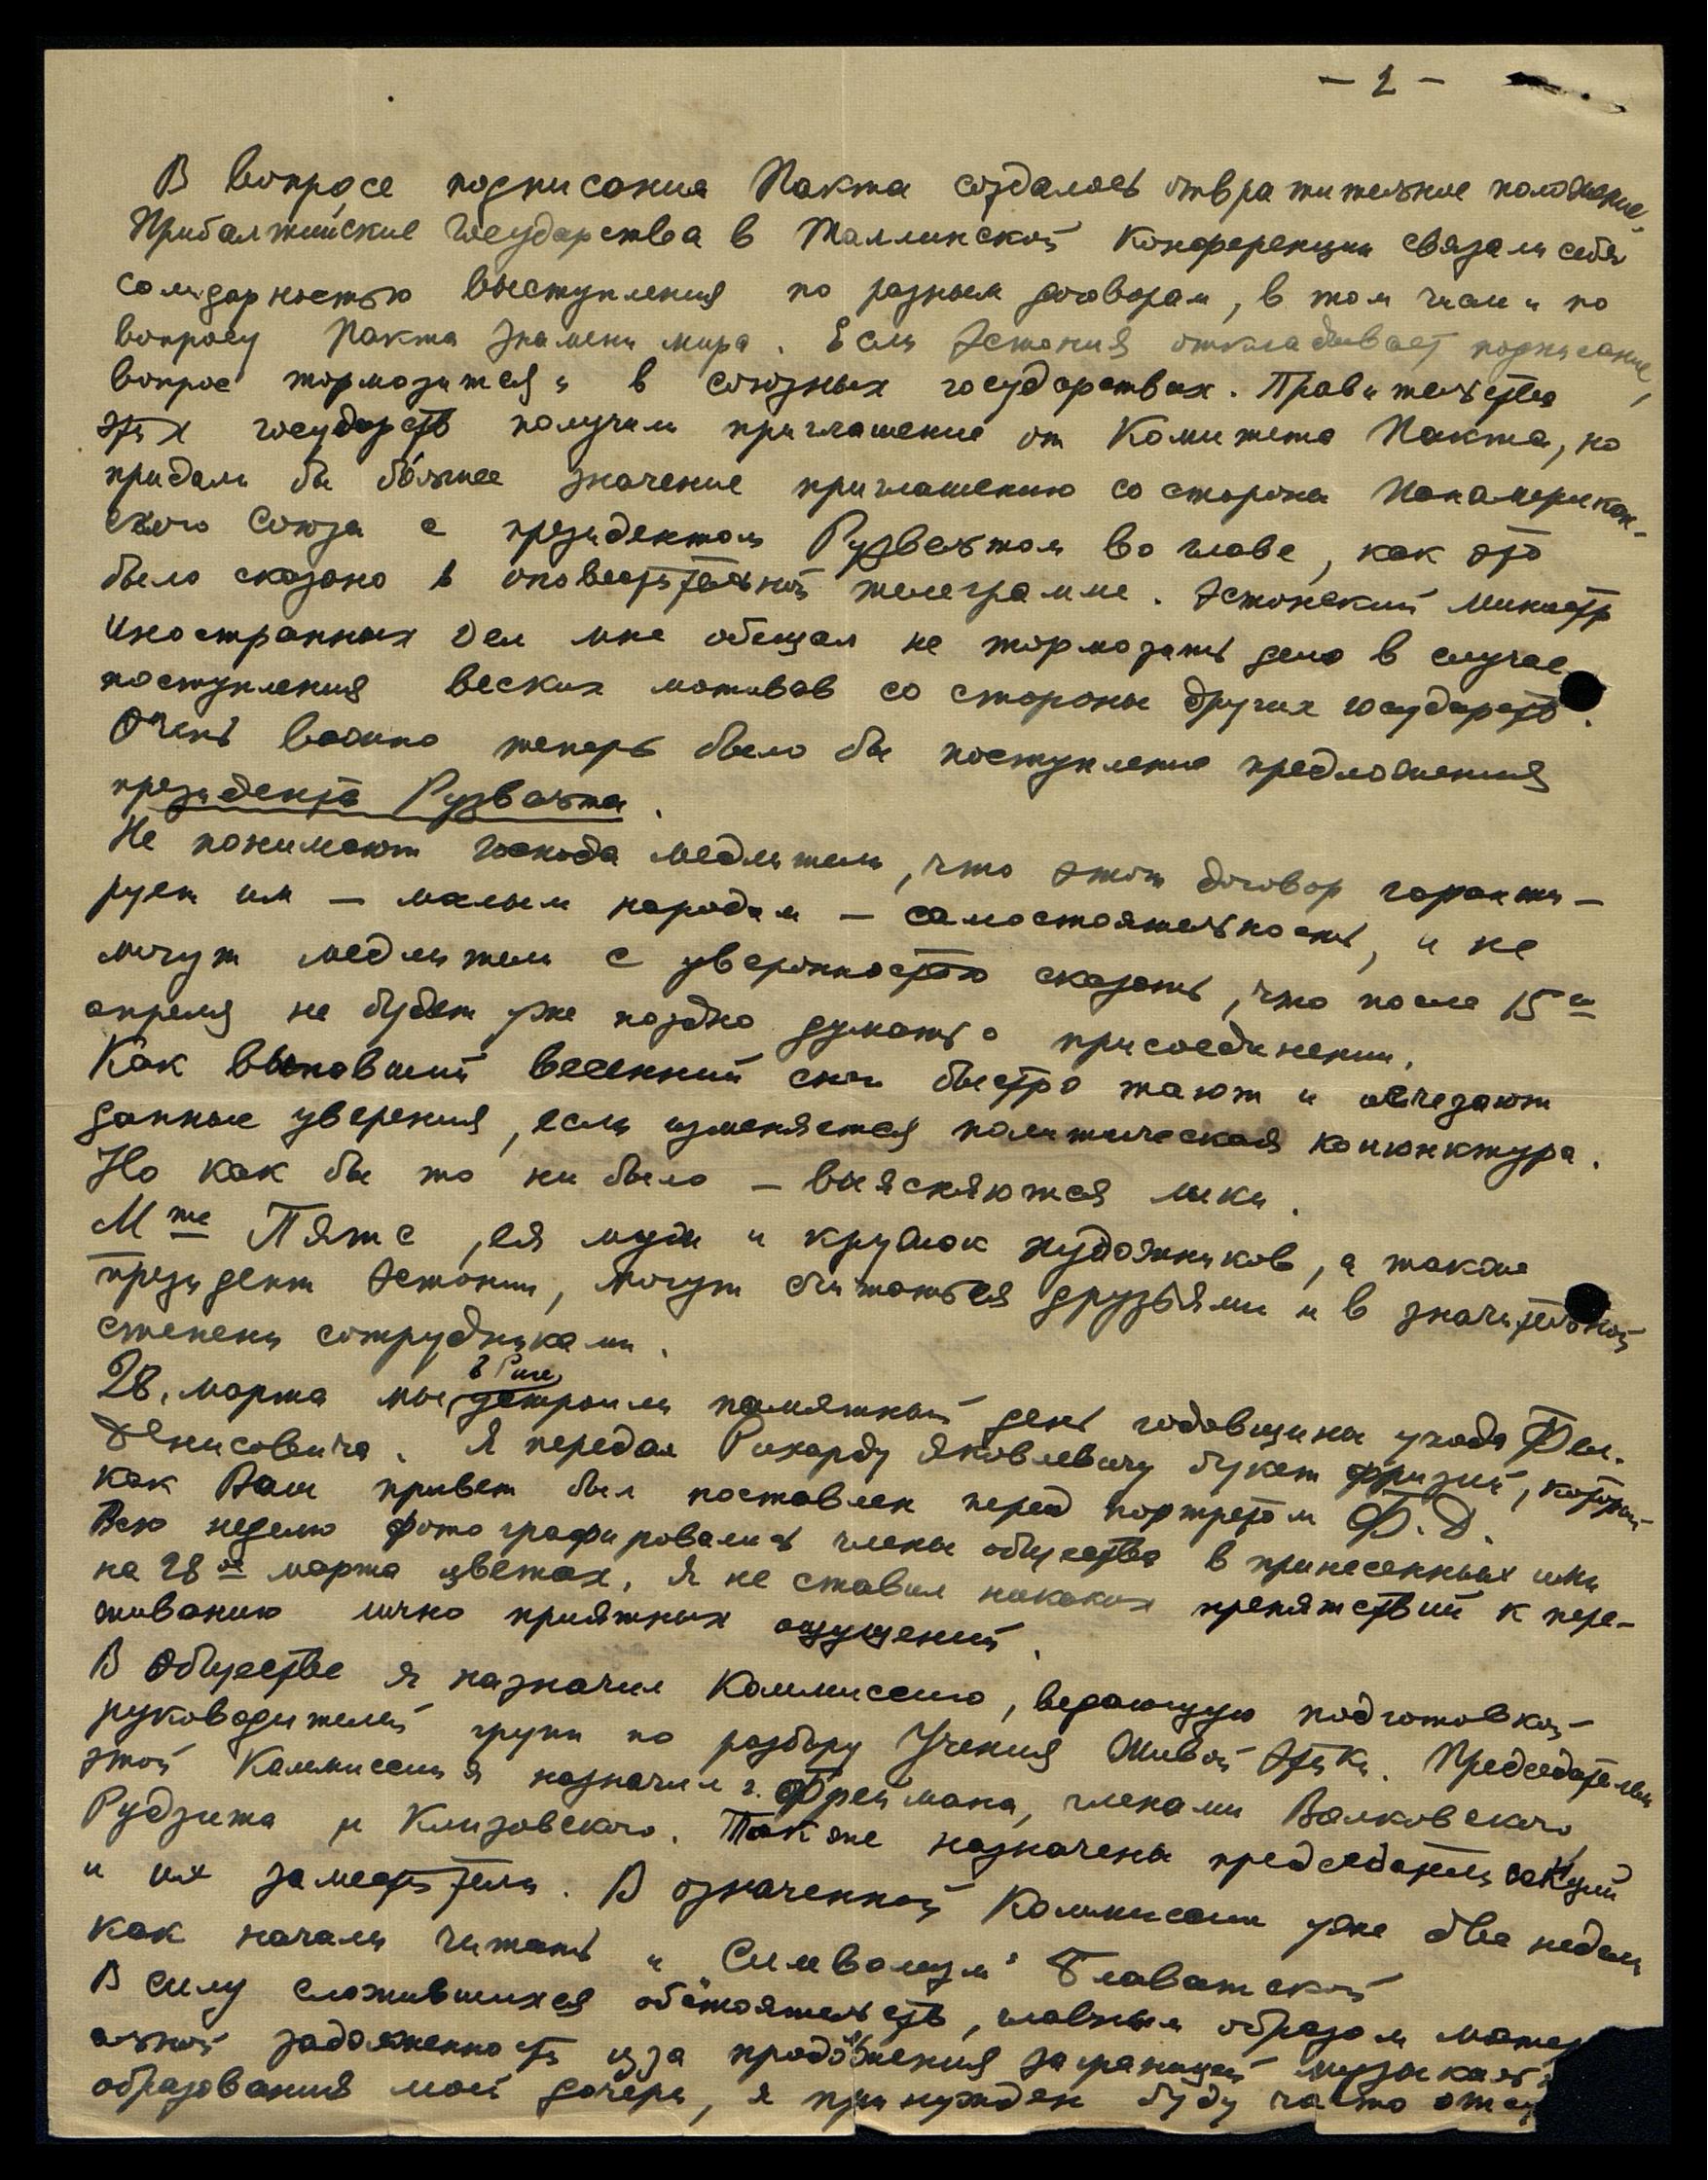 - 2 -
В вопросе подписания Пакта создалось отвратительное положение.
Прибалтийские Государства в Таллинской Конференции связали себя
солидарностью выступления по разным договорам, в том числе и по
вопросу Пакта Знамени мира. Если Эстония откладывает подписание,
вопрос тормозится и в союзных государствах. Правительства
этих государств получили приглашение от Комитета Пакта, но
придали бы бо́льшее значение приглашению со стороны Панамерикан-
ского Союза с президентом Рузвельтом во главе, как это
было сказано в оповестительной телеграмме. Эстонский министр
Иностранных Дел мне обещал не тормозить дело в случае
поступления веских мотивов со стороны других государств.
Очень важно теперь было бы поступление предложения
президента Рузвельта.
Не понимают господа медлители, что этот договор гаранти-
рует им — малым народам — самостоятельность, и не
могут медлители с уверенностью сказать, что после 15го
апреля не будет уже поздно думать о присоединении.
Как выпавший весенний снег быстро тают и исчезают
данные уверения, если изменяется политическая конюнктура.
Но как бы то ни было — выясняются лики.
Мme Пятс, ея муж и кружок художников, а также
президент Эстонии, могут считаться друзьями и в значительной
степени сотрудниками.
28. марта мы в Риге устроили памятный день годовщины ухода Фел.
Денисовича. Я передал Рихарду Яковлевичу букет фризий, который
как Ваш привет был поставлен перед портретом Ф.Д.
Всю неделю фотографировались члены общества в принесенных ими
на 28ое марта цветах. Я не ставил никаких препятствий к пере-
живанию лично приятных ощущений.
В Обществе я назначил Коммиссию, ведающую подготовкой
руководителей групп по разбору Учения Живой Этики. Председателем
этой Коммиссии я назначил г. Фреймана, членами Валковского,
Рудзита и Клизовского. Также назначены председатели секций
и их заместители. В означенной Коммиссии уже две недели
как начали читать "Символизм" Блаватской
В силу сложившихся обстоятельств, главным образом матер
альной задолженности изза продолжения заграницей музыкальн
образования моей дочери, я принужден буду часто отсу